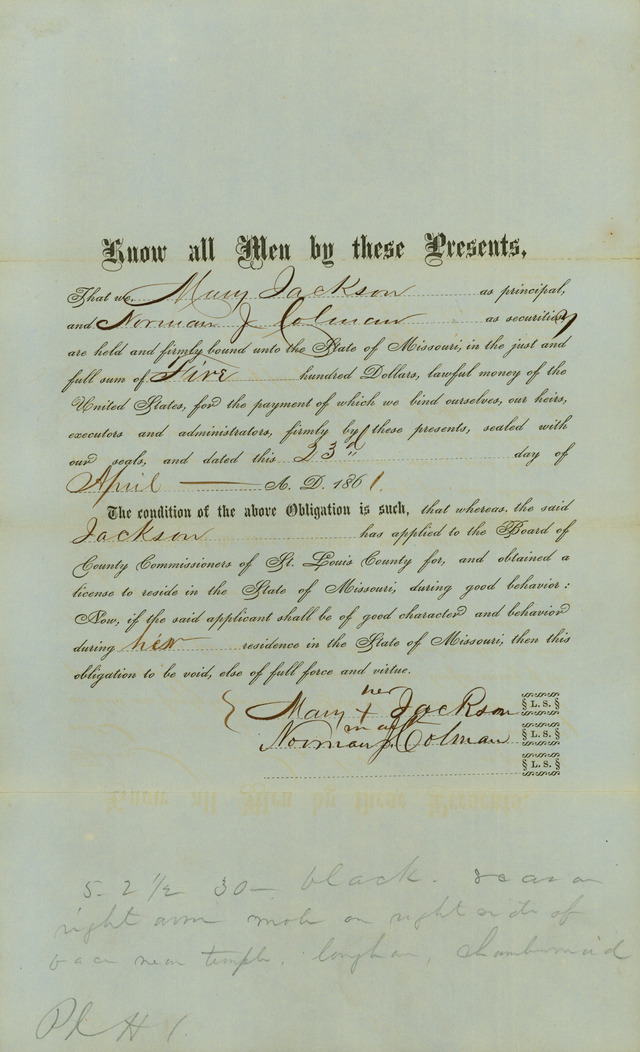 Know all Men by these Presents,
That we Mary Jackson as principal,
and Norman J Colman as securities
are held and firmly bound unto the State of Missouri, in the just and
full sum of Five hundred Dollars, lawful money of the
United States, for the payment of which we bind ourselves, our heirs,
executors and administrators, firmly by these presents, sealed with
our seals, and dated this 23d day of
April A. D. 1861.
The condition of the above Obligation is such, that whereas, the said
Jackson has applied to the Board of
County Commissioners of St. Louis County for, and obtained a
license to reside in the State of Missouri, during good behavior:
Now, if the said applicant shall be of good character and behavior
during her residence in the State of Missouri, then this
obligation to be void, else of full force and virtue.
her
Mary + Jackson L. S.
mark
Norman J. Colman L. S.
L. S.
5-2 1/2 30- black. scar on
right arm mole on right side of
face near temple. long hair, chambermaid